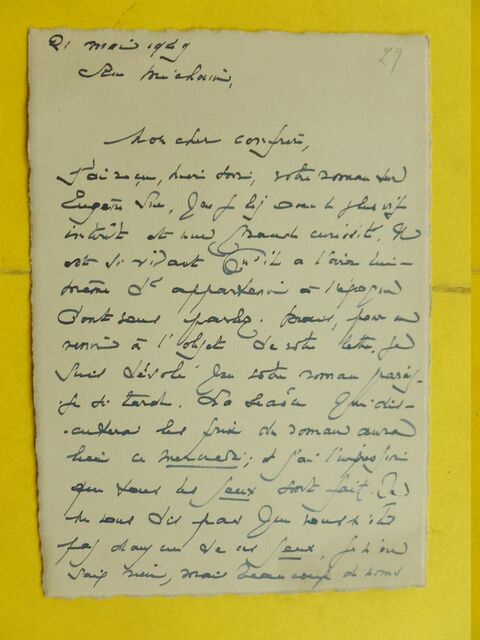 21 mai 1949 29
Rue Méchain,
Mon cher confrère,
J'ai reçu, hier soir, votre roman sur
Eugène Sue, que je lis avec le plus vif
intérêt et une grande curiosité. Il
est si vivant qu'il a l'air lui-
même d'appartenir à l'époque
dont vous parlez. Mais, pour en
revenir à l'objet de votre lettre, je
suis désolé que votre roman parais-
se si tard. La séance qui dis-
cutera les prix du roman aura
lieu ce mercredi; et j'ai l'impression
que tous les jeux sont faits. Je
ne vous dis pas que vous
pas de ces jeux, je n'en
sais rien, mais beaucoup de noms